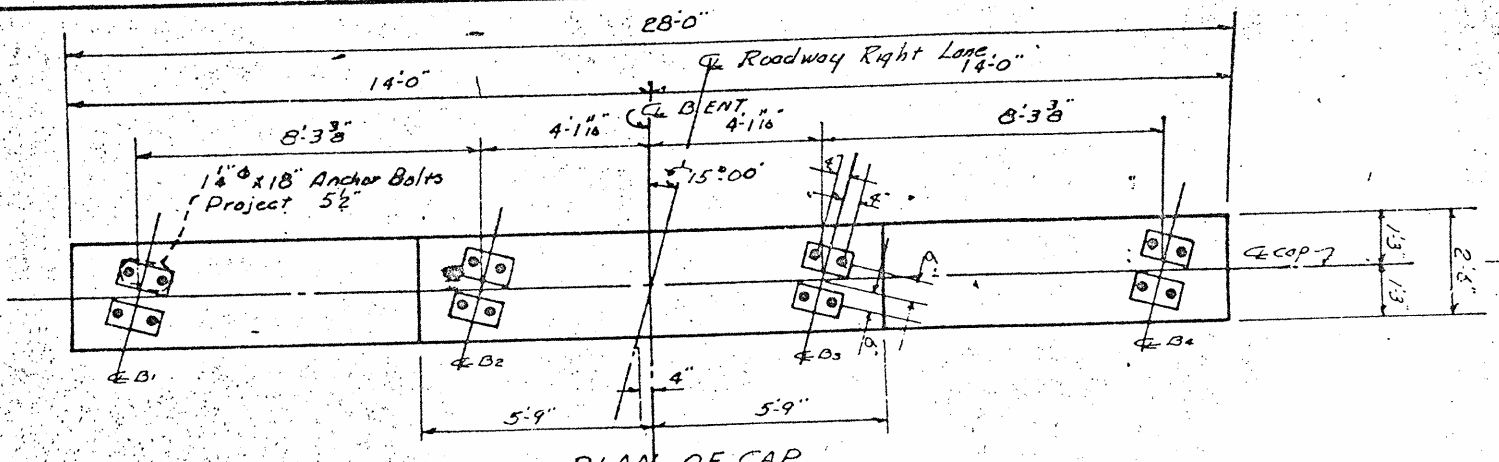 28'-0"
℄ Roadway Right Lane
14'-0"
14'-0"
℄ BENT
8'-3 3/8"
4'-1 11/16"
4'-1 11/16"
8'-3 3/8"
1 1/4" Φ x 18" Anchor Bolts
Project 5 1/2"
15°00'
4"
4"
℄ CAP
1'3"
1'3"
2'6"
9"
9"
℄ B1
℄ B2
℄ B3
℄ B4
4"
5'-9"
5'-9"
PLAN OF CAP